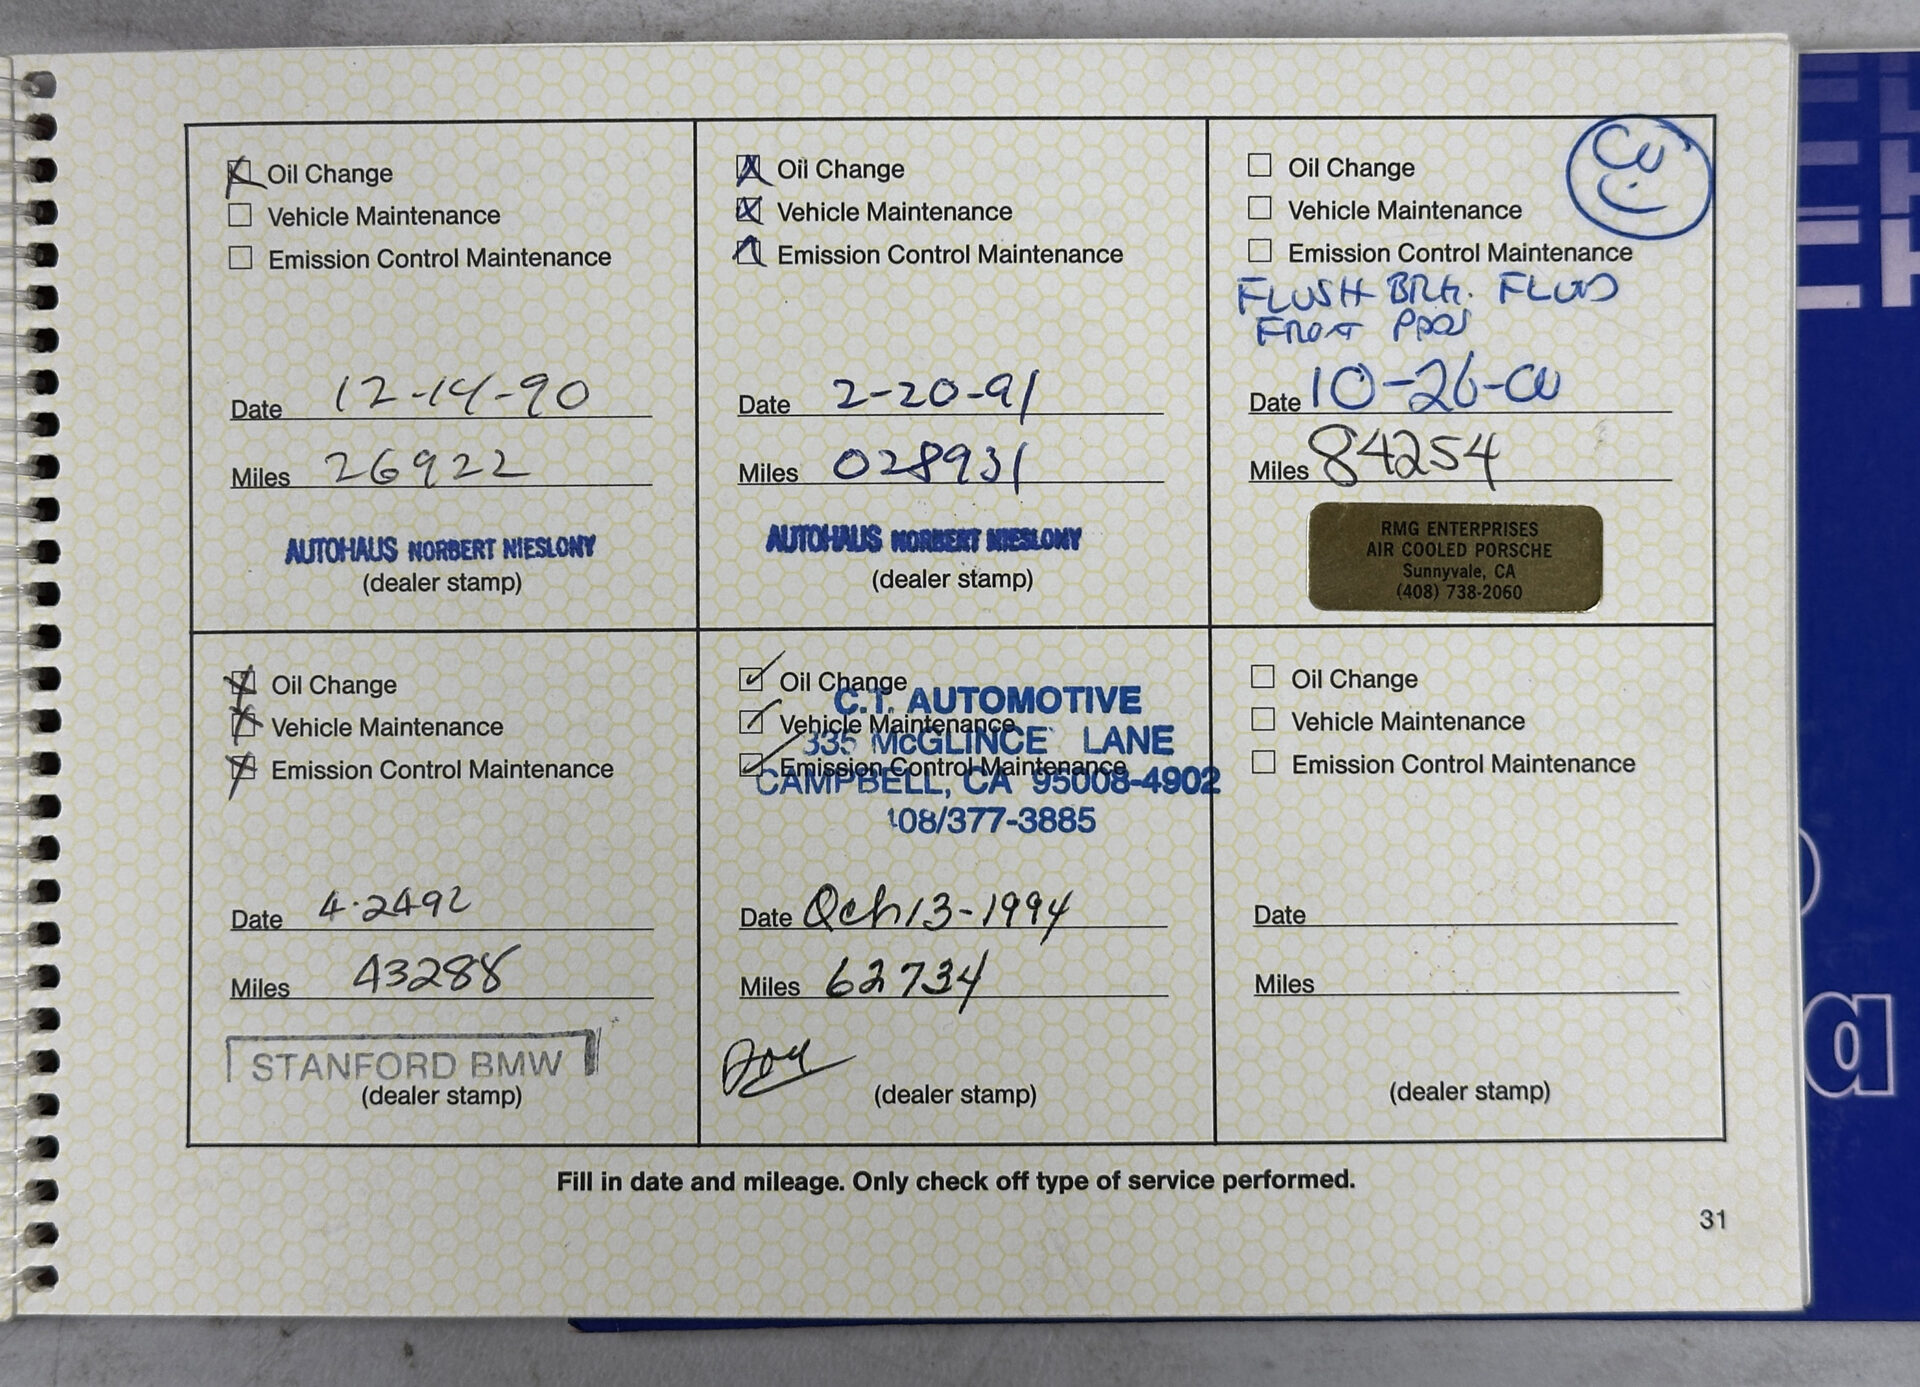 Oil Change
Vehicle Maintenance
Emission Control Maintenance
Date 12-14-90
Miles 26922
AUTOHAUS NORBERT NIESLONY
(dealer stamp)
Oil Change
Vehicle Maintenance
Emission Control Maintenance
Date 2-20-91
Miles 028931
AUTOHAUS NORBERT NIESLONY
(dealer stamp)
Oil Change
Vehicle Maintenance
Emission Control Maintenance
FLUSH BRK. FLUID
FRONT PADS
Date 10-26-00
Miles 84254
RMG ENTERPRISES
AIR COOLED PORSCHE
Sunnyvale, CA
(408) 738-2060
Oil Change
Vehicle Maintenance
Emission Control Maintenance
Date 4-2492
Miles 43288
STANFORD BMW
(dealer stamp)
Oil Change
C.T. AUTOMOTIVE
Vehicle Maintenance
335 McGLINCEY LANE
Emission Control Maintenance
CAMPBELL, CA 95008-4902
408/377-3885
Date Oct 13-1994
Miles 62734
(dealer stamp)
Oil Change
Vehicle Maintenance
Emission Control Maintenance
Date
Miles
(dealer stamp)
Fill in date and mileage. Only check off type of service performed.
31